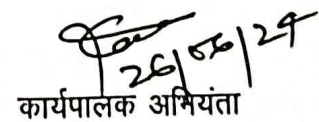 26/06/24
कार्यपालक अभियंता